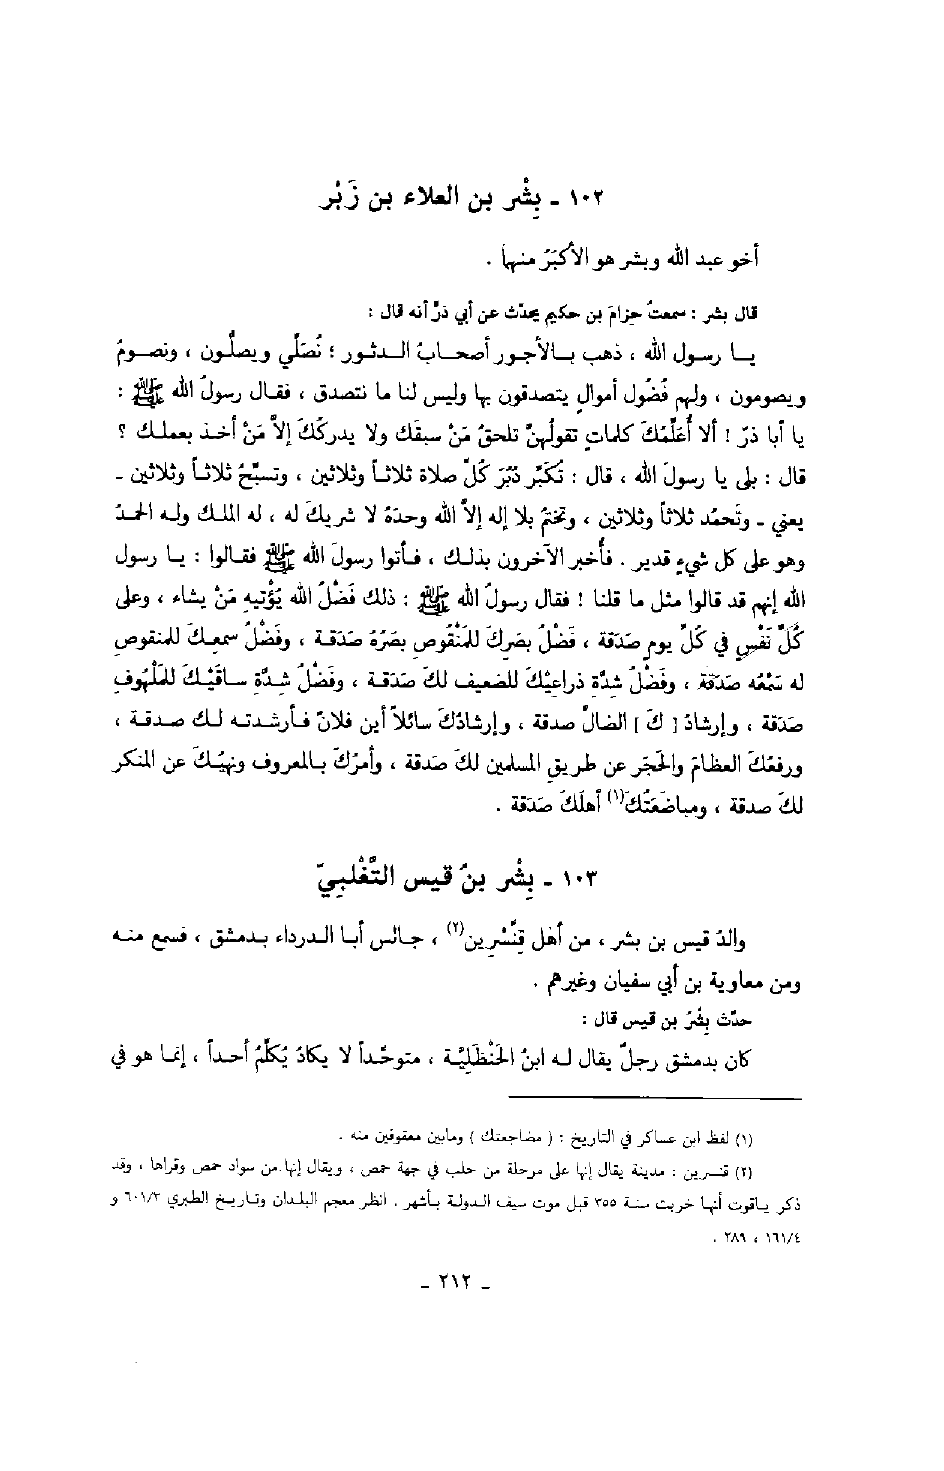 ١٠٢ ـ بِشْر بن العلاء بن زَبْر
أخو عبد الله وبشر هو الأكبَرُ منها .
قال بشر : سمعتُ حِزامَ بن حكيم يحدّث عن أبي ذرّ أنه قال :
يا رسول الله ، ذهب بالأجور أصحابُ الدثور ؛ نُصَلّي ويصلُّون ، ونصومُ
ويصومون ، ولهم فُضُول أموالٍ يتصدقون بها وليس لنا ما نتصدق ، فقال رسولُ الله ﷺ :
يا أبا ذرّ ! ألا أُعَلِّمُكَ كلماتٍ تقولُهنّ تلحقُ مَنْ سبقك ولا يدركُكَ إلاَّ مَنْ أخذ بعملك ؟
قال : بلى يا رسولَ الله ، قال : تُكَبِّر دُبُرَ كُلِّ صلاة ثلاثاً وثلاثين ، وتسبِّحُ ثلاثاً وثلاثين ـ
يعني ـ وتَحمَدُ ثلاثاً وثلاثين ، وتختمُ بلا إله إلاَّ الله وحدَهُ لا شريكَ له ، له الملك وله الحمدُ
وهو على كل شيءٍ قدير . فأُخبر الآخرون بذلك ، فأتوا رسولَ الله ﷺ فقالوا : يا رسول
الله إنهم قد قالوا مثل ما قلنا ! فقال رسولُ الله ﷺ : ذلك فَضْلُ الله يُؤْتيهِ مَنْ يشاء ، وعلى
كُلِّ نَفْسٍ في كُلِّ يومٍ صَدَقة ، فَضْلُ بصَرِكَ للمَنْقُوصِ بصَرُهُ صَدَقة ، وفَضْلُ سمعِكَ للمنقوصِ
له سَمْعُه صَدَقة ، وفَضْلُ شِدَّةِ ذراعَيْكَ للضعيف لكَ صَدَقة ، وفَضْلُ شدَّةِ ساقَيْكَ للمَلْهُوفِ
صَدَقة ، وإرشادُ [ كَ ] الضالَّ صدقة ، وإرشادُكَ سائلاً أين فلانٌ فأرشدته لك صدقة ،
ورفعُكَ العظامَ والحَجَر عن طريقِ المسلمين لكَ صَدقة ، وأمرُكَ بالمعروف ونهيُكَ عن المنكر
لكَ صدقة ، ومباضَعَتُكَ(١) أهلَكَ صَدَقة .
١٠٣ ـ بِشْر بنُ قيس التَّغْلبِيّ
والدُ قيس بن بشر ، من أهل قِنَّسْرِين(٢) ، جالس أبا الدرداء بدمشق ، فسمع منه
ومن معاوية بن أبي سفيان وغيرهم .
حدَّث بِشْرُ بن قيس قال :
كان بدمشق رجلٌ يقال له ابنُ الحَنْظَلِيَّة ، متوحِّداً لا يكادُ يُكَلِّمُ أحداً ، إنما هو في
(١) لفظ ابن عساكر في التاريخ : ( مضاجعتك ) ومابين معقوفين منه .
(٢) قنسرين : مدينة يقال إنها على مرحلة من حلب في جهة حمص ، ويقال إنها من سواد حمص وقراها ، وقد
ذكر ياقوت أنها خربت سنة ٣٥٥ قبل موت سيف الدولة بأشهر . انظر معجم البلدان وتاريخ الطبري ٦٠١/٣ و
١٦١/٤ ، ٢٨٩ .
ـ ٢١٢ ـ